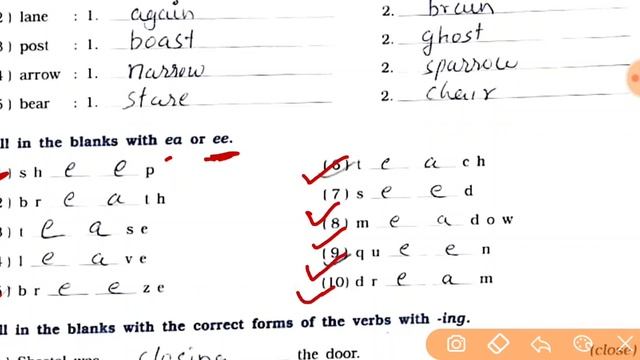 2) lane : 1. again 2. brain
3) post : 1. boast 2. ghost
4) arrow : 1. narrow 2. sparrow
5) bear : 1. stare 2. chair
ll in the blanks with ea or ee.
) s h e e p (6) t e a c h
2) b r e a t h (7) s e e d
3) t e a s e (8) m e a d o w
4) l e a v e (9) q u e e n
5) b r e e z e (10) d r e a m
ll in the blanks with the correct forms of the verbs with -ing.
closing the door. (close)